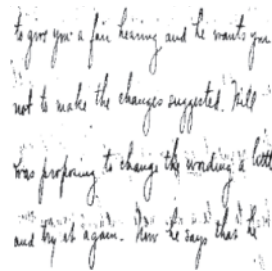 to give you a fair hearing and he wants you
not to make the changes suggested. Hill
was proposing to change the wording a little
and try it again. Now he says that he